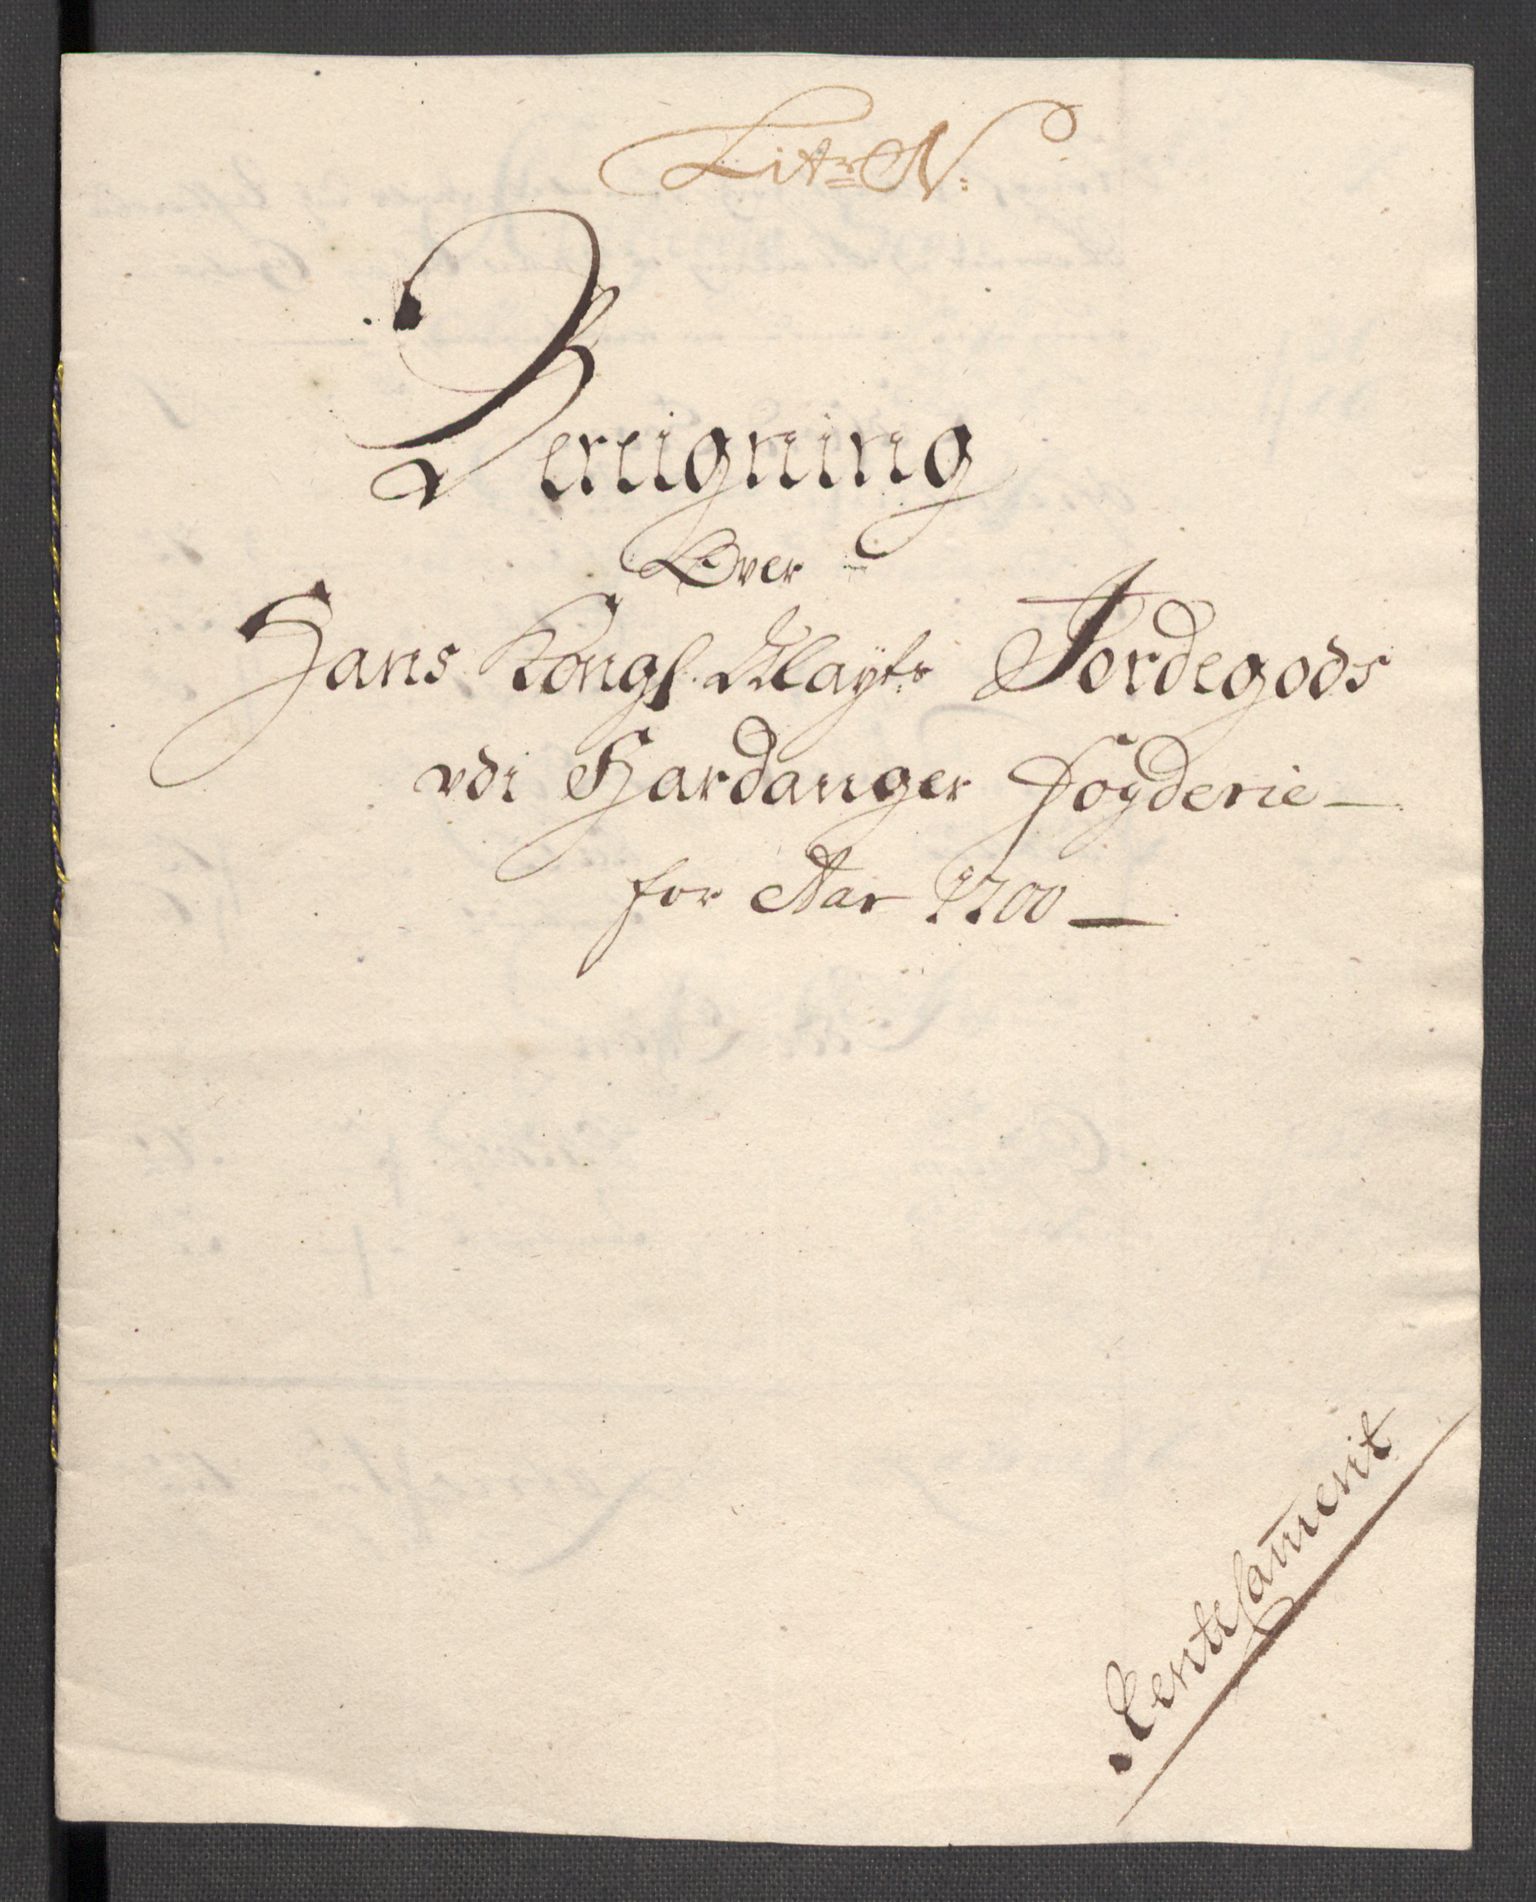 Litr N:
Bereigning
Over
Hans Kongl. Mayts Jordegods
vdi Hardanger Fogderie
for Aar 1700
Rentecamerit